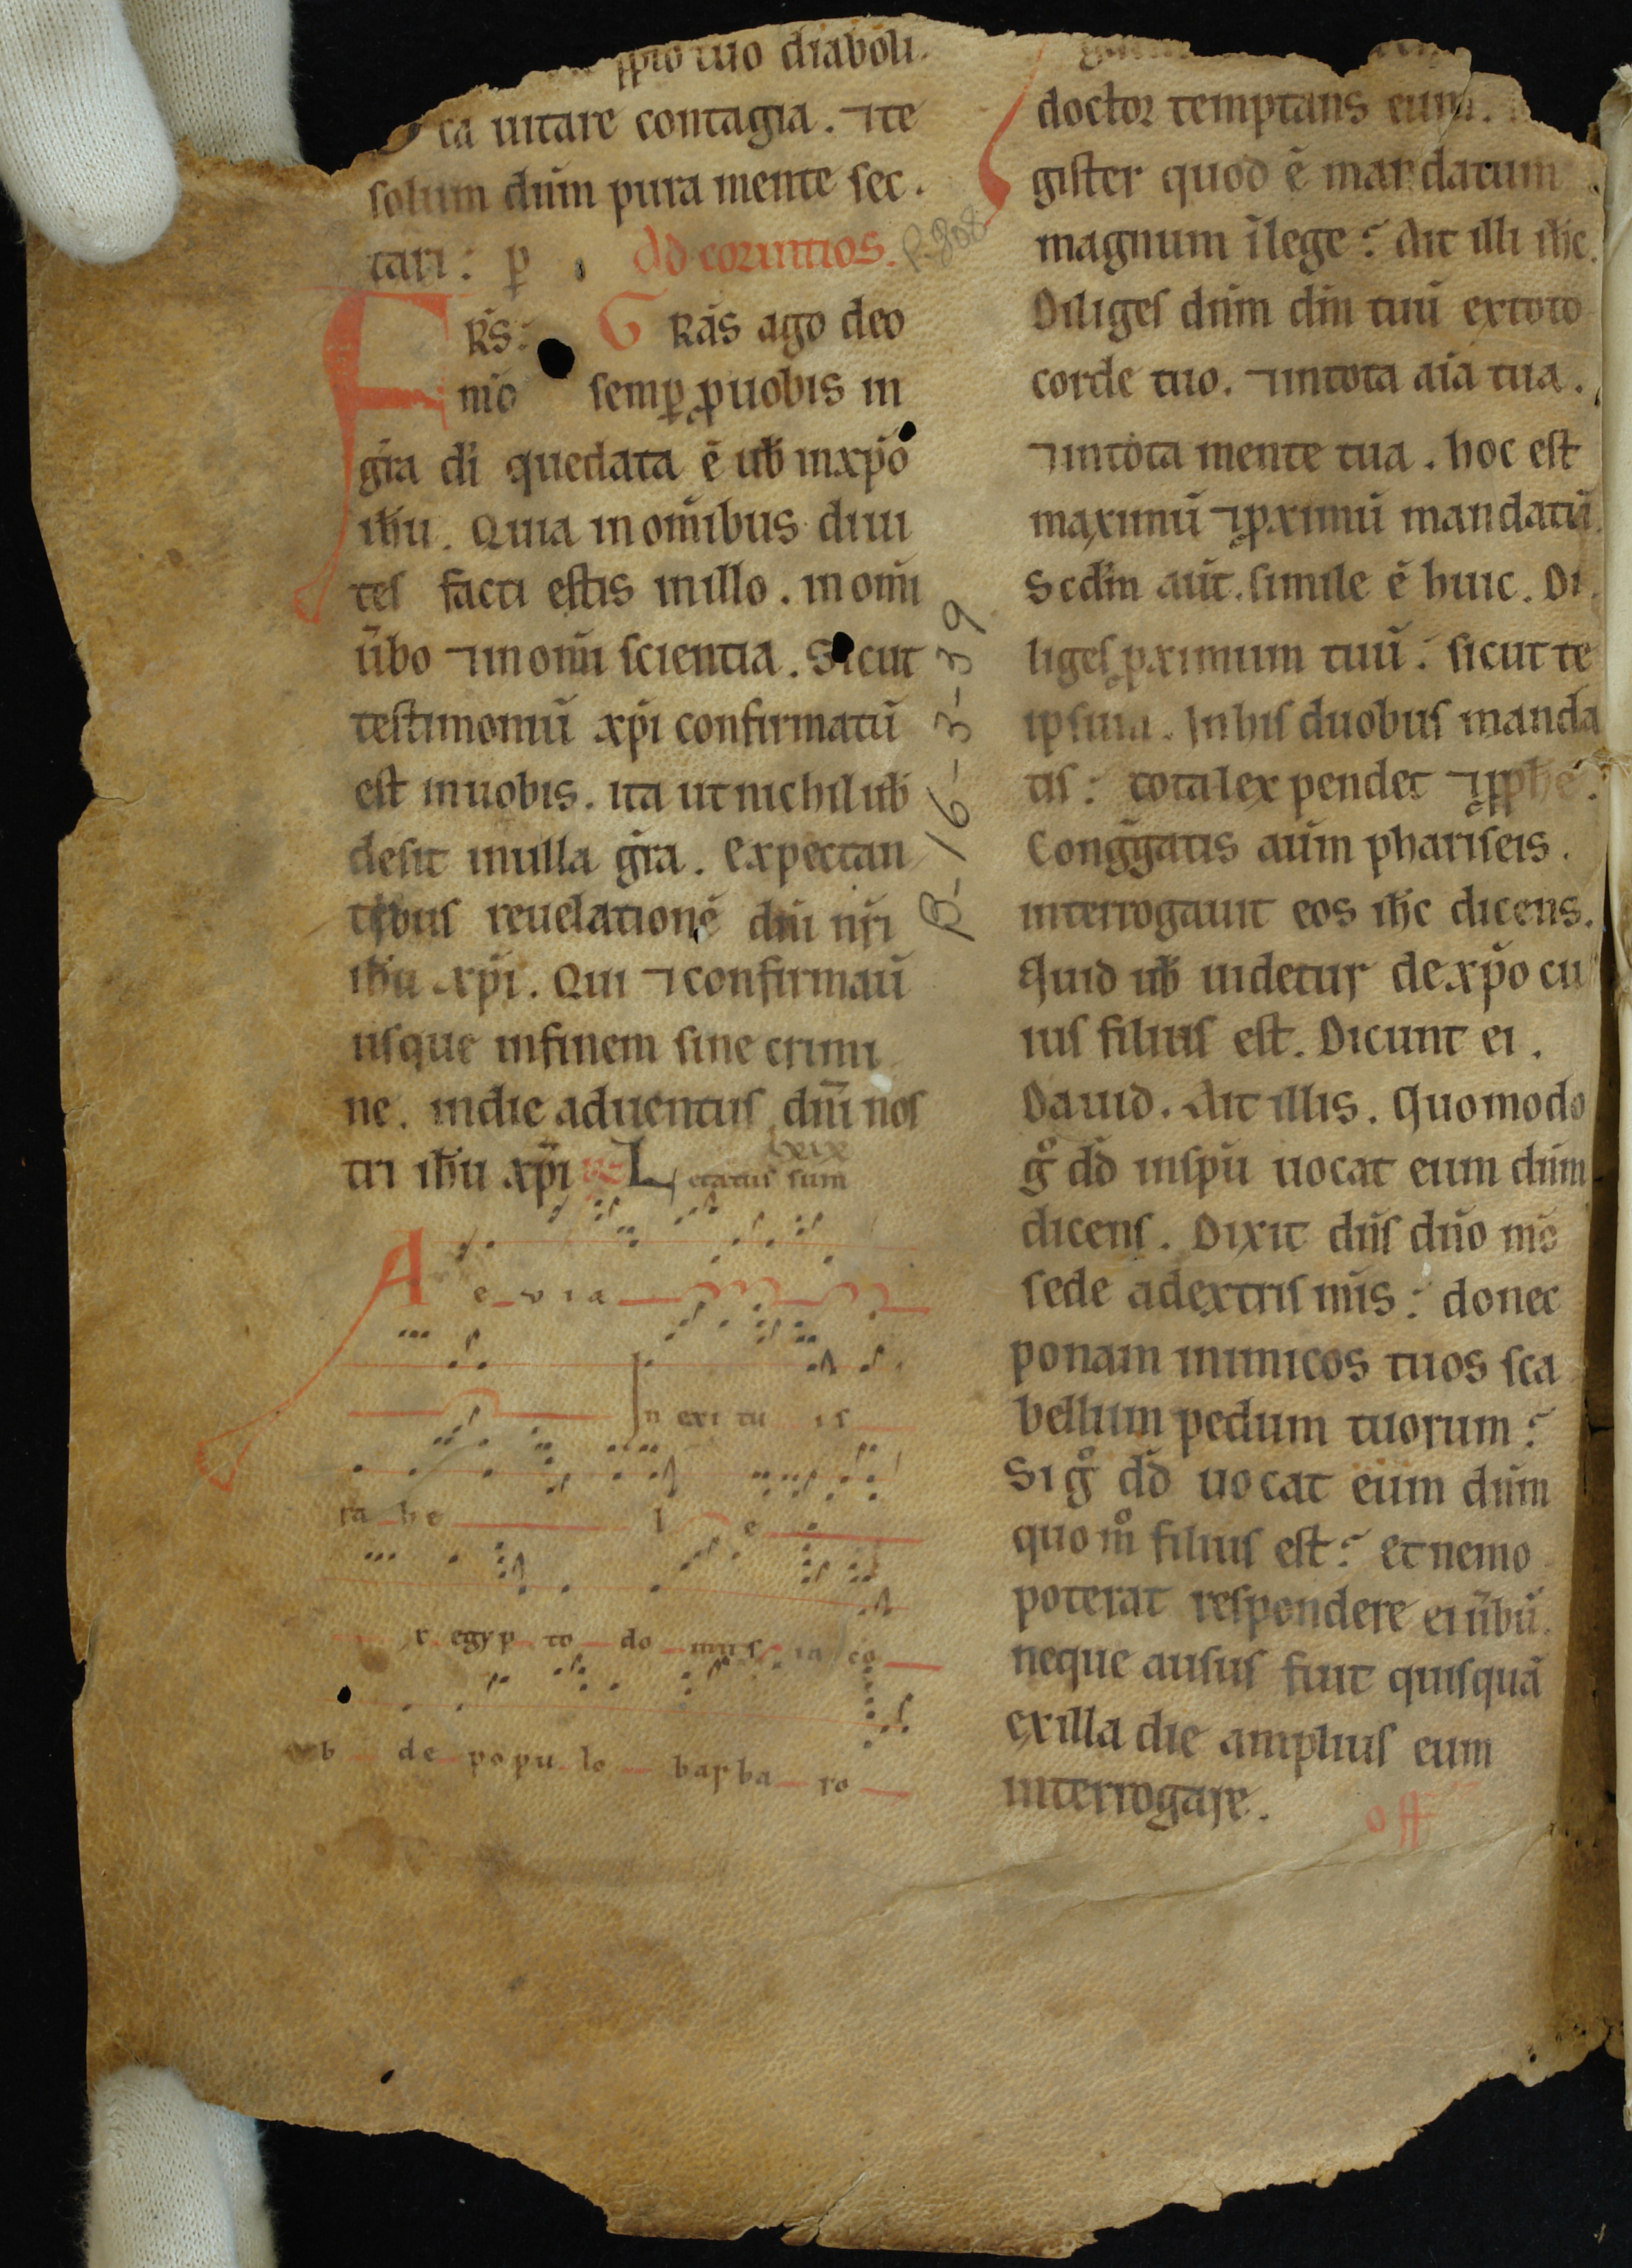 ppło tuo diaboli.
ca uitare contagia. ⁊te
solum dūm pura mente sec.
tari: p̲ Ad corintios. P-808-
FRS: Grās ago deo
mō semp̲ ꝓuobis in
grā di quedata ē uƀ inxp̄o
ih̄u. Quia inom̄ibus diui
tes facti estis inillo. inom̄i
ūbo ⁊inom̄i scientia. Sicut
testimoniū xp̄i confirmatū
est inuobis. ita ut nichil uƀ
desit inulla grā. Expectan
tibus reuelationē dn̄i nr̄i
ih̄u xp̄i. Qui ⁊confirmaū
usque infinem sine crimi
ne. indie aduentus dn̄i nos
tri ih̄u xp̄i Letatus sum
A e v i a
In exi tu is
ra he l e
x egyp to do mus ia co
b de popu lo barba ro
B-16-3-39
doctor temptans eum.
gister quod ē mandatum
magnum ilege? Ait illi ih̄c.
Diliges dūm dm̄ tuū extoto
corde tuo. ⁊intota aīa tua.
⁊intota mente tua. hoc est
maximū ⁊ꝓximū mandatū.
Scdm̄ aūt. simile ē huic. Di
liges ꝓximum tuū: sicut te
ipsum. Inhis duobus manda
tis: tota lex pendet ⁊ꝓphe.
Congḡatis aūm phariseis.
interrogauit eos ih̄c dicens.
Quid uƀ uidetur dexp̄o cu
ius filius est. Dicunt ei.
Dauid. Ait illis. Quomodo
g̊ dd̄ inspū uocat eum dūm
dicens. Dixit dn̄s dn̄o mō
sede adextris mīs: donec
ponam inimicos tuos sca
bellum pedum tuorum?
Si g̊ dd̄ uocat eum dūm
quom̊ filius est? et nemo
poterat respondere ei ūbū.
neque ausus fuit quisquā
exilla die amplius eum
interrogare. off